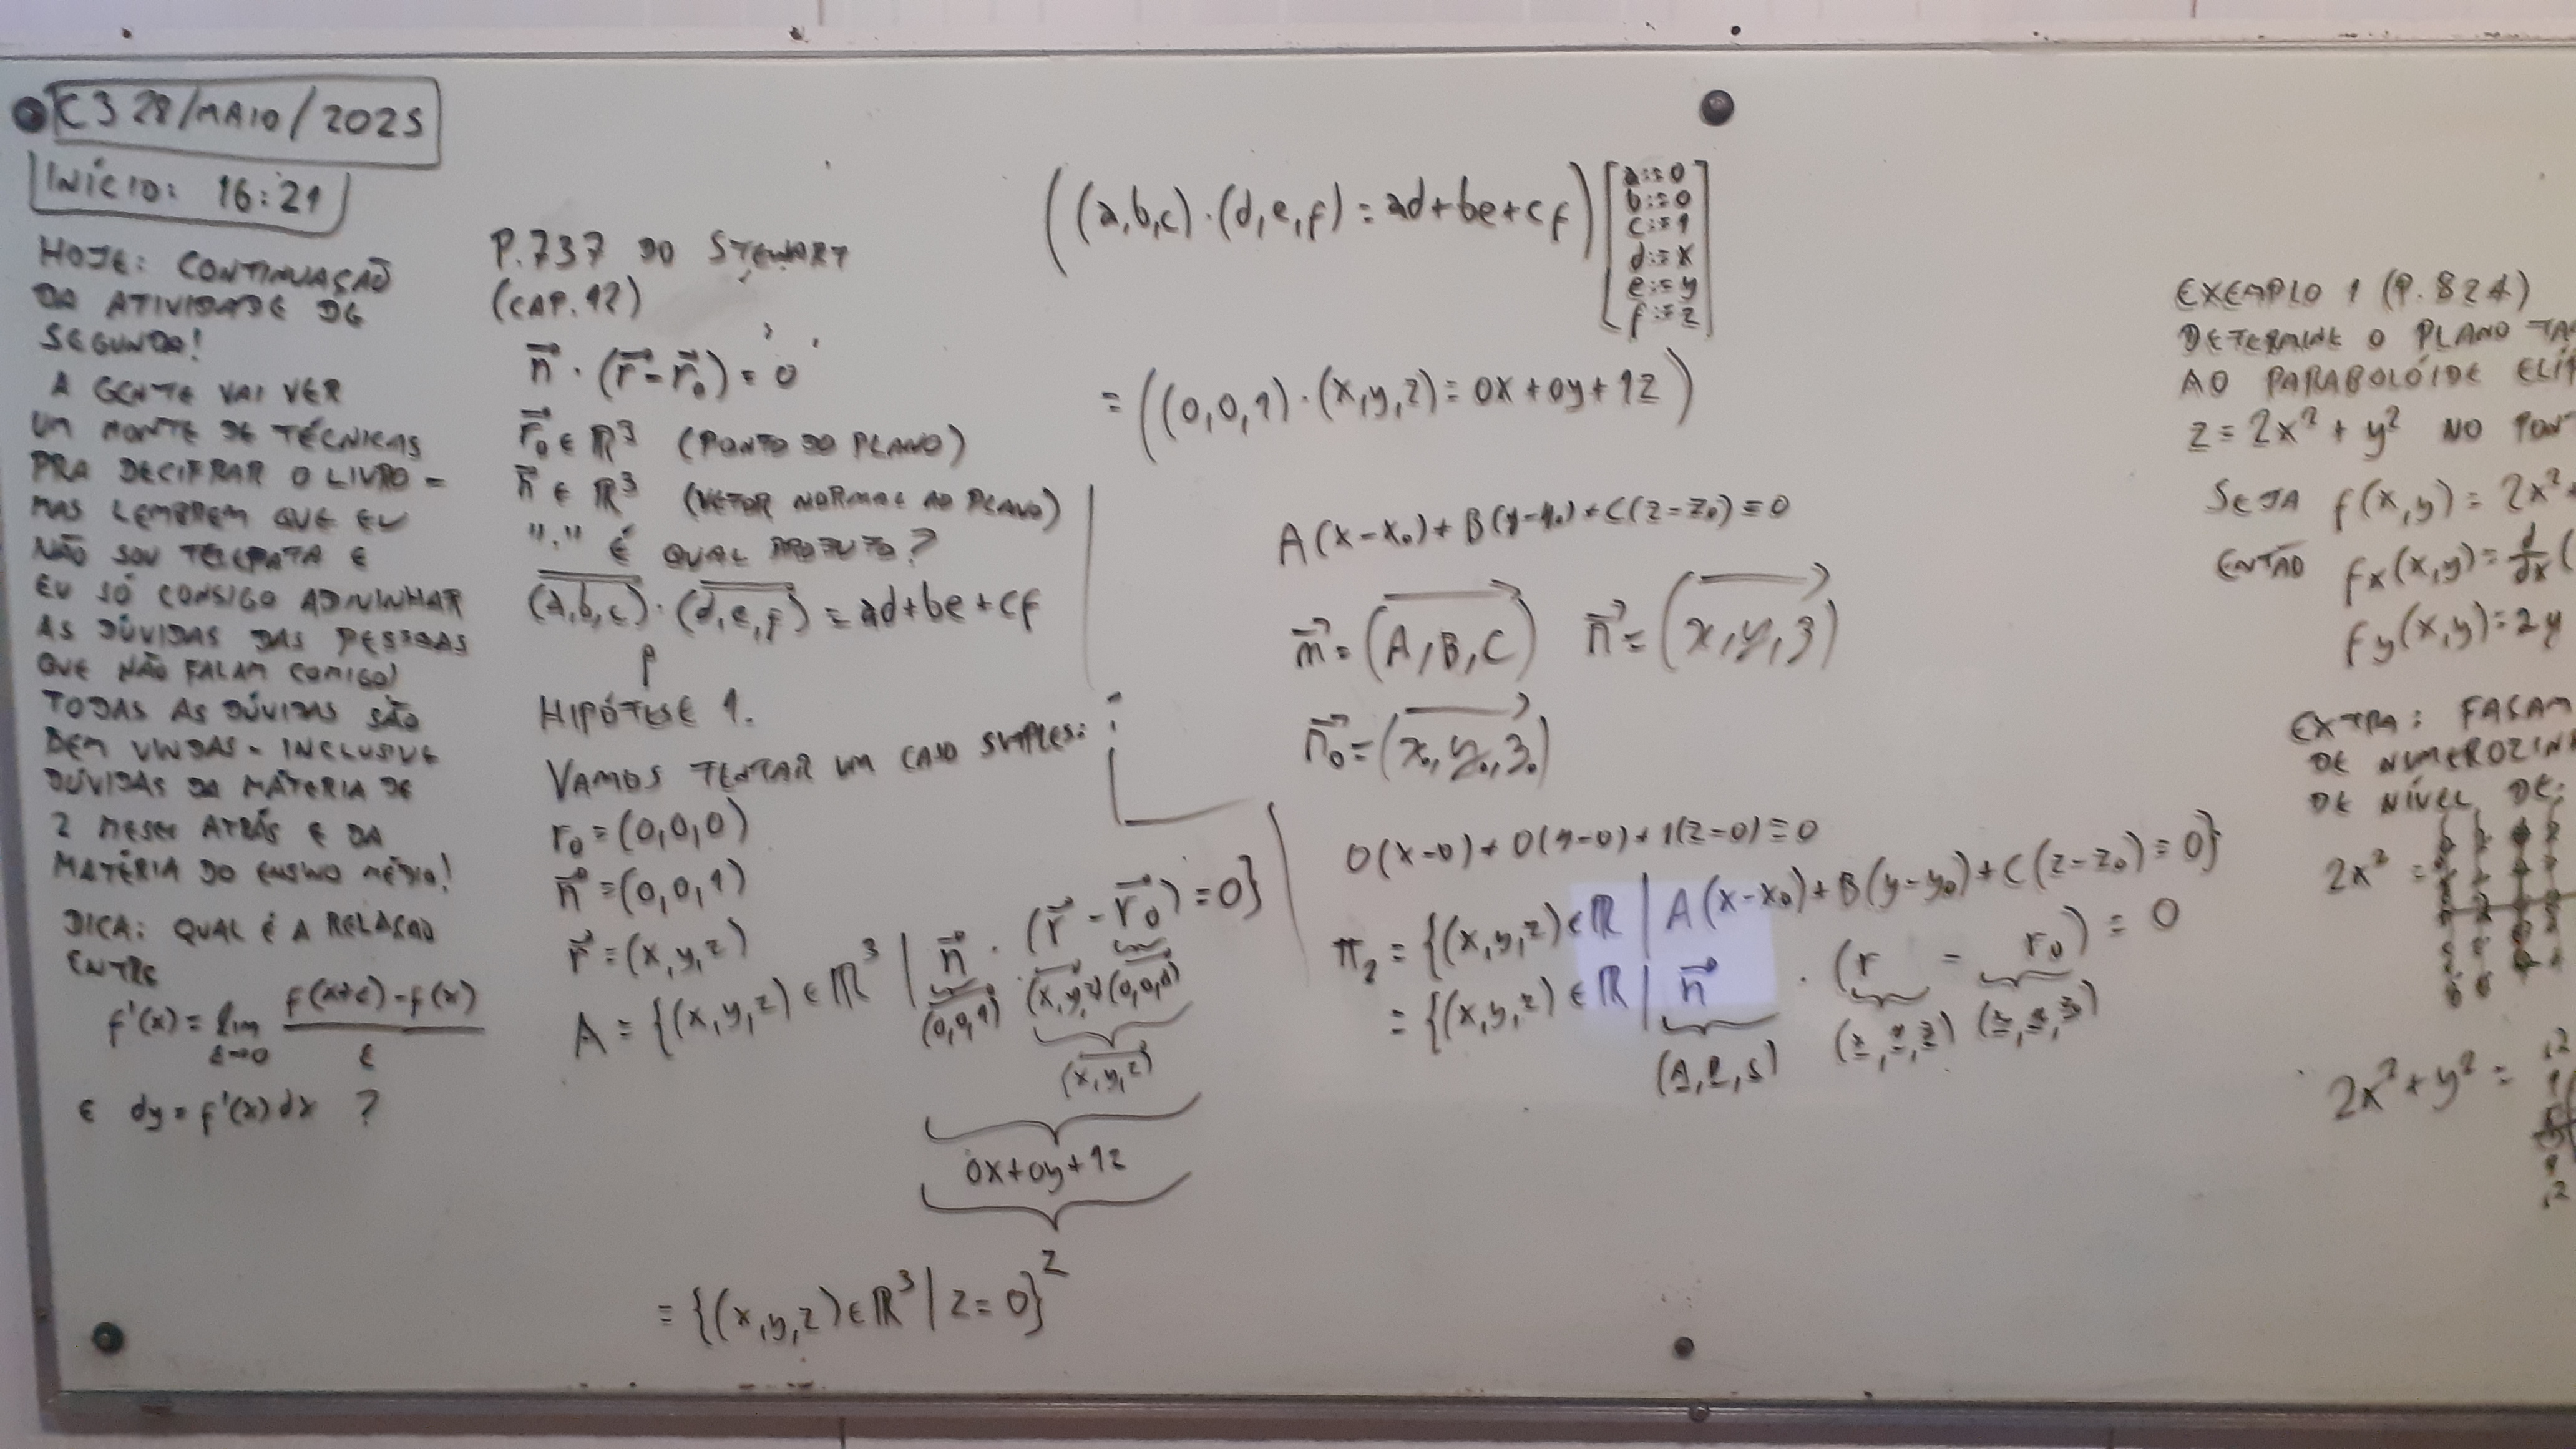 C3 28/MAIO/2025
INÍCIO: 16:21
HOJE: CONTINUAÇÃO
DA ATIVIDADE DE
SEGUNDA!
A GENTE VAI VER
UM MONTE DE TÉCNICAS
PRA DECIFRAR O LIVRO -
MAS LEMBREM QUE EU
NÃO SOU TELEPATA E
EU SÓ CONSIGO ADIVINHAR
AS DÚVIDAS DAS PESSOAS
QUE NÃO FALAM COMIGO!
TODAS AS DÚVIDAS SÃO
BEM VINDAS - INCLUSIVE
DÚVIDAS DA MATÉRIA DE
2 MESES ATRÁS E DA
MATÉRIA DO ENSINO MÉDIO!
DICA: QUAL É A RELAÇÃO
ENTRE
f'(x) = lim ε→0 (f(x+ε)-f(x))/ε
E dy = f'(x)dx ?
P.737 DO STEWART
(CAP.12)
n⃗ · (r⃗ - r⃗₀) = 0
r⃗₀ ∈ ℝ³ (PONTO DO PLANO)
n⃗ ∈ ℝ³ (VETOR NORMAL AO PLANO)
"·" É QUAL PRODUTO?
(a,b,c) · (d,e,f) = ad+be+cf
HIPÓTESE 1.
VAMOS TENTAR UM CASO SIMPLES:
r₀ = (0,0,0)
n⃗ = (0,0,1)
r⃗ = (x,y,z)
A = {(x,y,z) ∈ ℝ³ | n⃗ · (r⃗ - r⃗₀) = 0}
(0,0,1) (x,y,z) (0,0,0)
(x,y,z)
0x+0y+1z
z
= {(x,y,z) ∈ ℝ³ | z = 0}
((a,b,c)·(d,e,f) = ad+be+cf) [a:=0
b:=0
c:=1
d:=x
e:=y
f:=z]
= ((0,0,1)·(x,y,z) = 0x+0y+1z)
A(x-x₀)+B(y-y₀)+C(z-z₀) = 0
m⃗ = (A,B,C) n⃗ = (x,y,z)
n⃗₀ = (x₀,y₀,z₀)
0(x-0)+0(y-0)+1(z-0) = 0
π₂ = {(x,y,z) ∈ ℝ | A(x-x₀)+B(y-y₀)+C(z-z₀) = 0}
= {(x,y,z) ∈ ℝ | n⃗ · (r - r₀) = 0
EXEMPLO 1 (P.824)
DETERMINE O PLANO
AO PARABOLÓIDE
z = 2x² + y² NO
SEJA f(x,y) = 2x²
ENTÃO fx(x,y) = d/dx (
fy(x,y) = 2y
EXTRA: FAÇAM
DE
DE NÍVEL DE:
2x² =
2x² + y² =